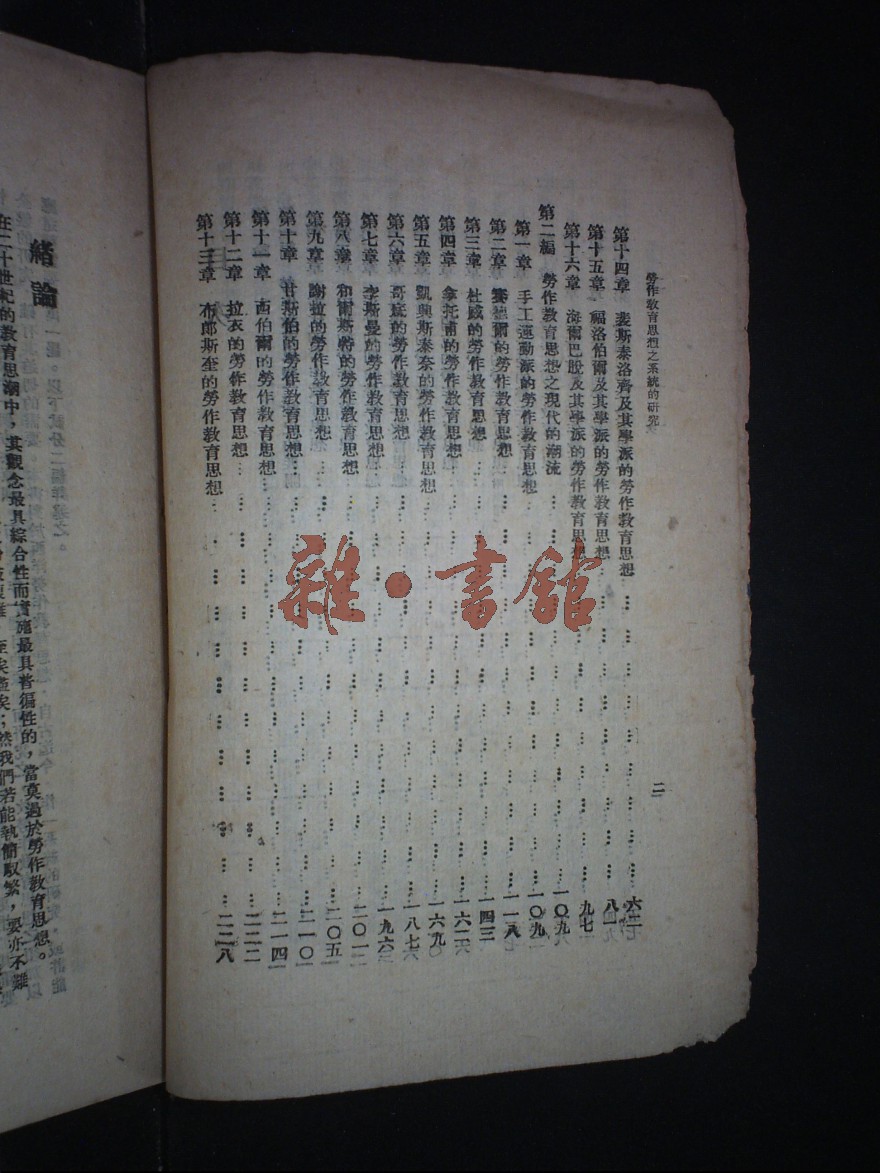 勞作教育思想之系統的研究
二
第十四章 裴斯泰洛齊及其學派的勞作教育思想… 六二
第十五章 福洛伯爾及其學派的勞作教育思想… 八一
第十六章 海爾巴脫及其學派的勞作教育思想… 九七
第二編 勞作教育思想之現代的潮流… 一〇九
第一章 手工運動派的勞作教育思想… 一〇九
第二章 賽德爾的勞作教育思想… 一一八
第三章 杜威的勞作教育思想… 一四三
第四章 拿托甫的勞作教育思想… 一六二
第五章 凱興斯泰奈的勞作教育思想… 一六九
第六章 哥底的勞作教育思想… 一八七
第七章 李斯曼的勞作教育思想… 一九六
第八章 和爾斯特的勞作教育思想… 二〇一
第九章 謝拉的勞作教育思想… 二〇五
第十章 甘斯伯的勞作教育思想… 二一〇
第十一章 西伯爾的勞作教育思想… 二一四
第十二章 拉衣的勞作教育思想… 二二二
第十三章 布郎斯奎的勞作教育思想… 二二八
緒論
在二十世紀的教育思潮中，其觀念最具綜合性而實施最具普徧性的，當莫過於勞作教育思想。
至矣盡矣；然我們若能執簡馭繁，要亦不難
雜·書館